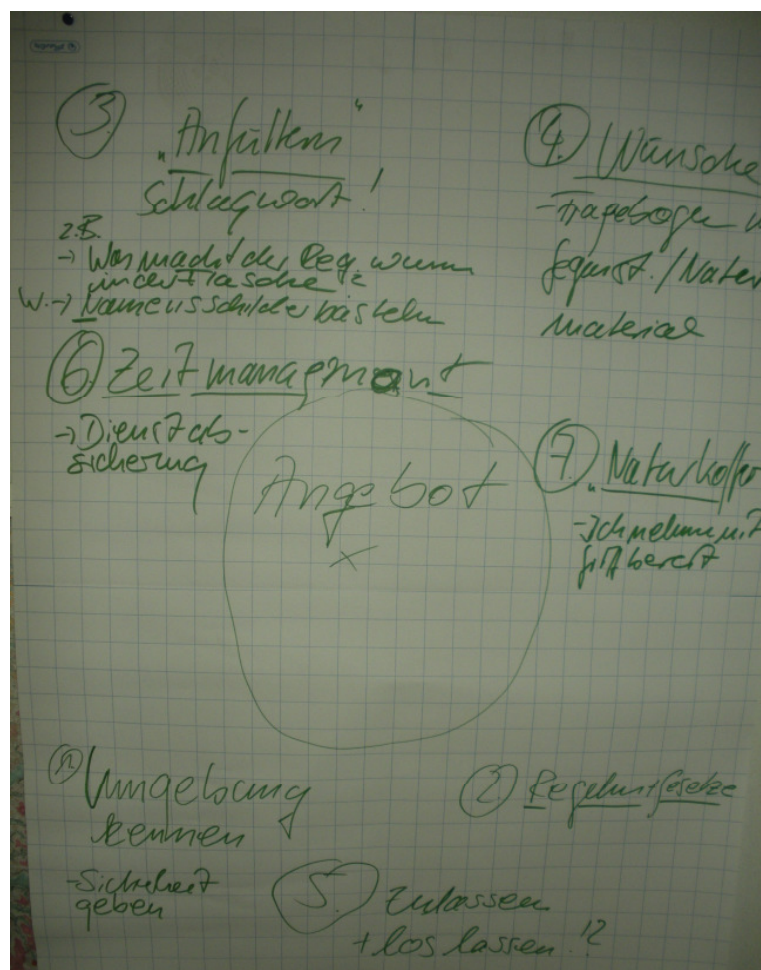 3.
"Anfüttern"
Schlagwort!
z.B.
→ Was macht der Regenwurm
in der Flasche?
W. → Namensschilder basteln
4. Wünsche
- Fragebogen
/ Natur
material
6 Zeitmanagment
→ Dienstab-
sicherung
Angebot
x
7. "Naturkoffer
- Ich nehm mit
griffbereit
1 Umgebung
kennen
- Sicherheit
geben
2. Regeln + Gesetze
5. zulassen
+ los lassen!?